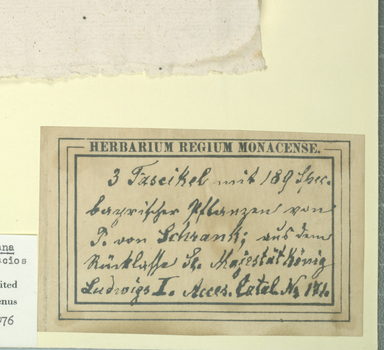 HERBARIUM REGIUM MONACENSE.
3 Fascikel mit 189 Spec.
bayrischer Pflanzen von
P. von Schrank; aus dem
Rücklasse Sr. Majestät König
Ludwigs I. Acces. Catal. No 171.
na
scios
ited
enus
076